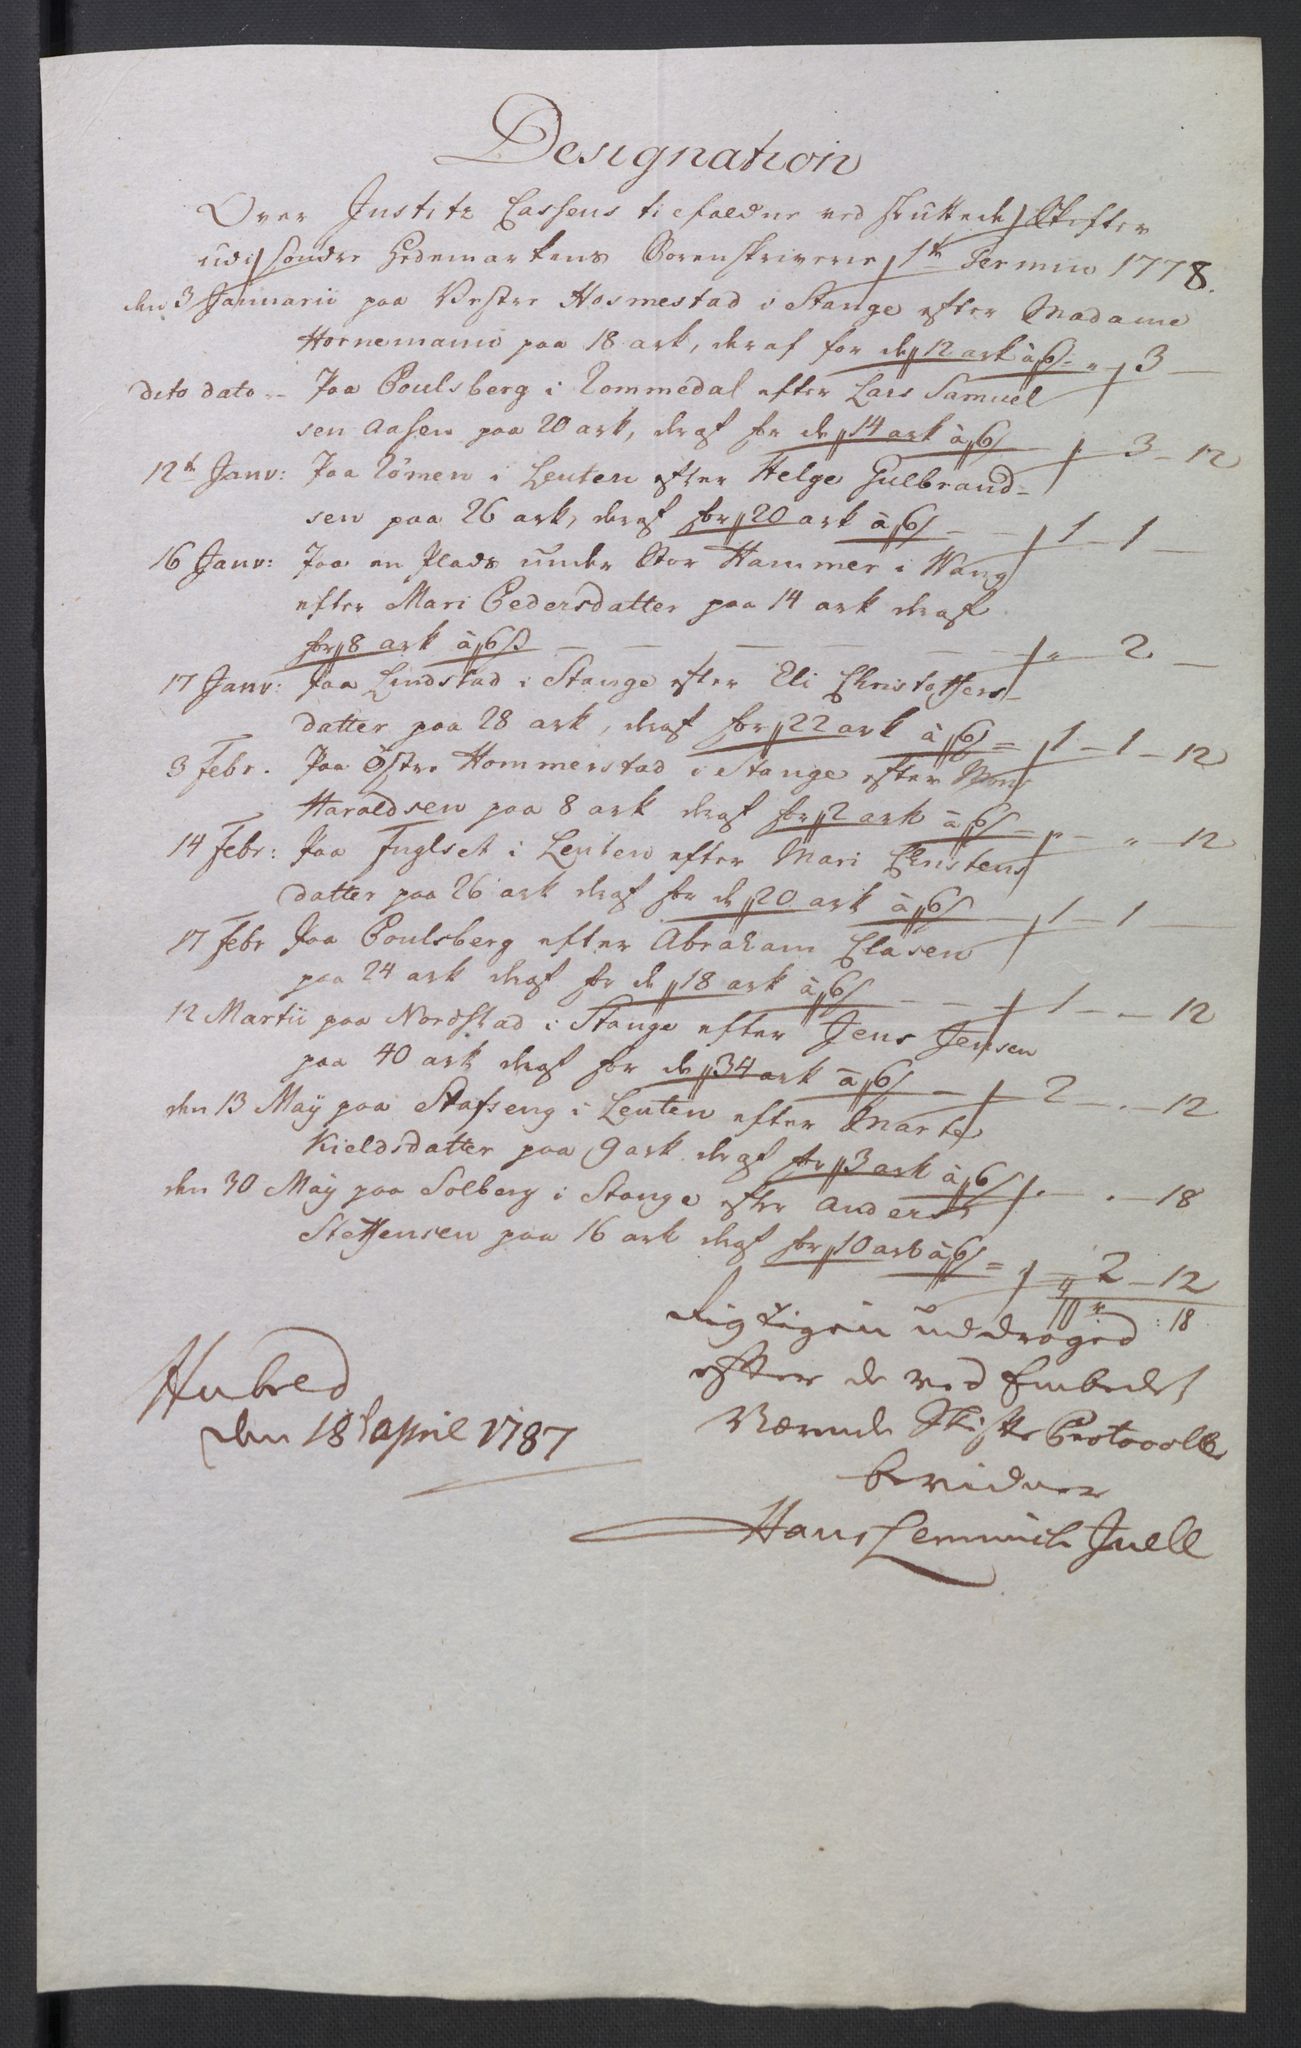 Designation
Over Justitz Cassens tiefaldne ved sluttede Skifter
udi Søndre Hedemarkens Sorenskriverie 1te Termin 1778.
den 3 Januarii paa Vestre Hosmestad i Stange efter Madame
Hornemann paa 18 ark, deraf for de 12 ark à 6 s - " 3 -
dito dato - Paa Poulsberg i Rommedal efter Lars Samuel
sen Aasen paa 20 ark, deraf for de 14 ark à 6 s - " 3 - 12
12te Janv: Paa Rømen i Leuten efter Helge Gulbrand-
sen paa 26 ark, deraf for 20 ark à 6 s - 1 - 1 -
16 Janv: Paa en Plads under Stor Hammer i Wang
efter Mari Pedersdatter paa 14 ark deraf
for 8 ark à 6 s - - - - " 2 -
17 Janv: Paa Lindstad i Stange efter Eli Christoffers-
datter paa 28 ark, deraf for 22 ark à 6 s = 1 - 1 - 12
3 Febr. Paa Østre Hommerstad i Stange efter Mons
Haroldsen paa 8 ark deraf for 2 ark à 6 s - " - " - 12
14 Febr: Paa Fuglset i Leuten efter Mari Christens
datter paa 26 ark deraf for de 20 ark à 6 s - 1 - 1 -
17 Febr Paa Poulsberg efter Abraham Clasen
paa 24 ark deraf for de 18 ark à 6 s - - 1 - - 12
12 Martii paa Nordstad i Stange efter Jens Jensen
paa 40 ark deraf for de 34 ark à 6 s - 2 - . - 12
den 13 Maÿ paa Stafseng i Leuten efter Marte
Kieldsdatter paa 9 ark deraf for 3 ark à 6 s . - . - 18
den 30 Maÿ paa Solberg i Stange efter Anders
Steffensen paa 16 ark deraf for 10 ark à 6 s = " = 2 - 12
: 18
Rigtigen uddraged
efter de ved Embedet
Værende Skifte Protocolle
bevidner
Hans Lemmich Juell
Hubred
den 18de April 1787